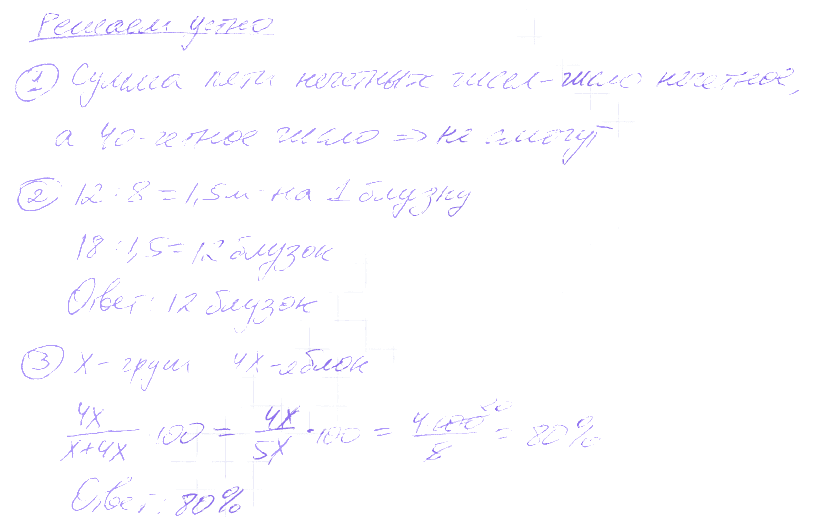 Решаем устно
① Сумма пяти нечетных чисел - число нечетное,
а 40 - четное число => не смогут
② 12 : 8 = 1,5 м - на 1 блузку
18 : 1,5 = 12 блузок
Ответ: 12 блузок
③ х - груш 4х - яблок
4х/(х+4х) · 100 = 4х/5х · 100 = 4·100²⁰/8 = 80%
Ответ: 80%